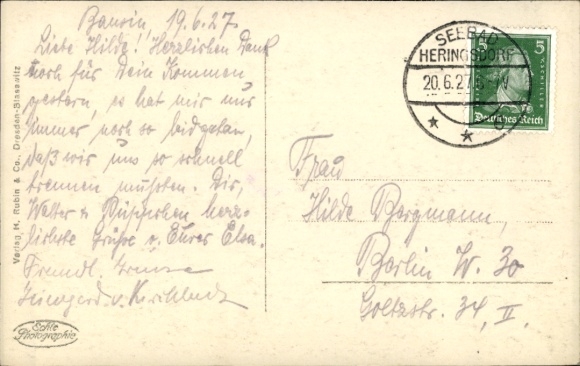 Bansin, 19.6.27.
Liebe Hilde! Herzlichen Dank
noch für Dein Kommen
gestern, es hat mir nur
immer noch so leidgetan,
daß wir uns so schnell
trennen mußten. Dir,
Walter u. herz-
lichste Grüße v. Eurer Elsa.
Freundl. Grüsse
Irmgard v.
Frau
Hilde Bergmann,
Berlin W. 30
Goltzstr. 34, II.
SEEBAD
HERINGSDORF
20.6.27
5 5
SCHILLER
Deutsches Reich
Verlag H. Rubin & Co., Dresden-Blasewitz
Echte
Photographie